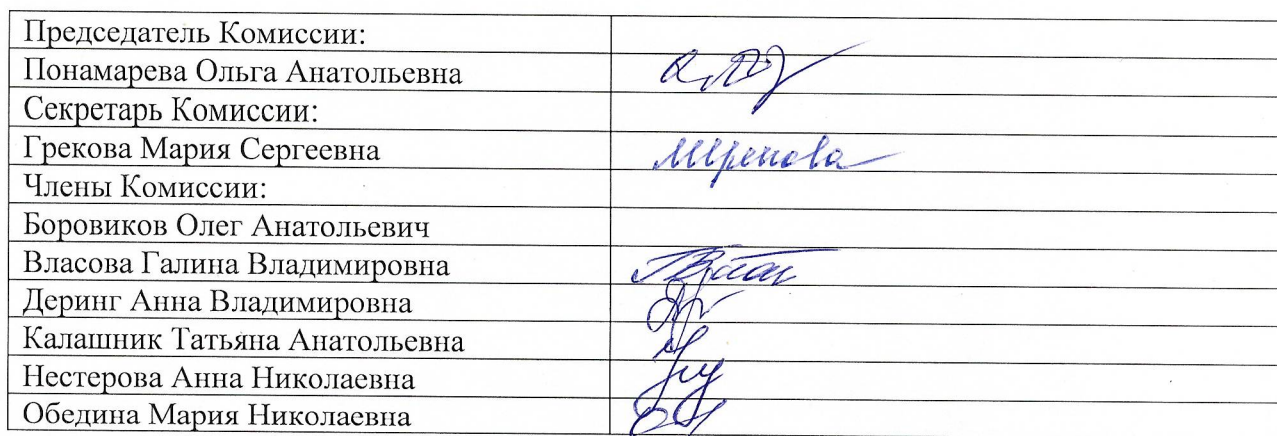 Председатель Комиссии:
Понамарева Ольга Анатольевна
Секретарь Комиссии:
Грекова Мария Сергеевна
МГрекова
Члены Комиссии:
Боровиков Олег Анатольевич
Власова Галина Владимировна
Деринг Анна Владимировна
Калашник Татьяна Анатольевна
Нестерова Анна Николаевна
Обедина Мария Николаевна